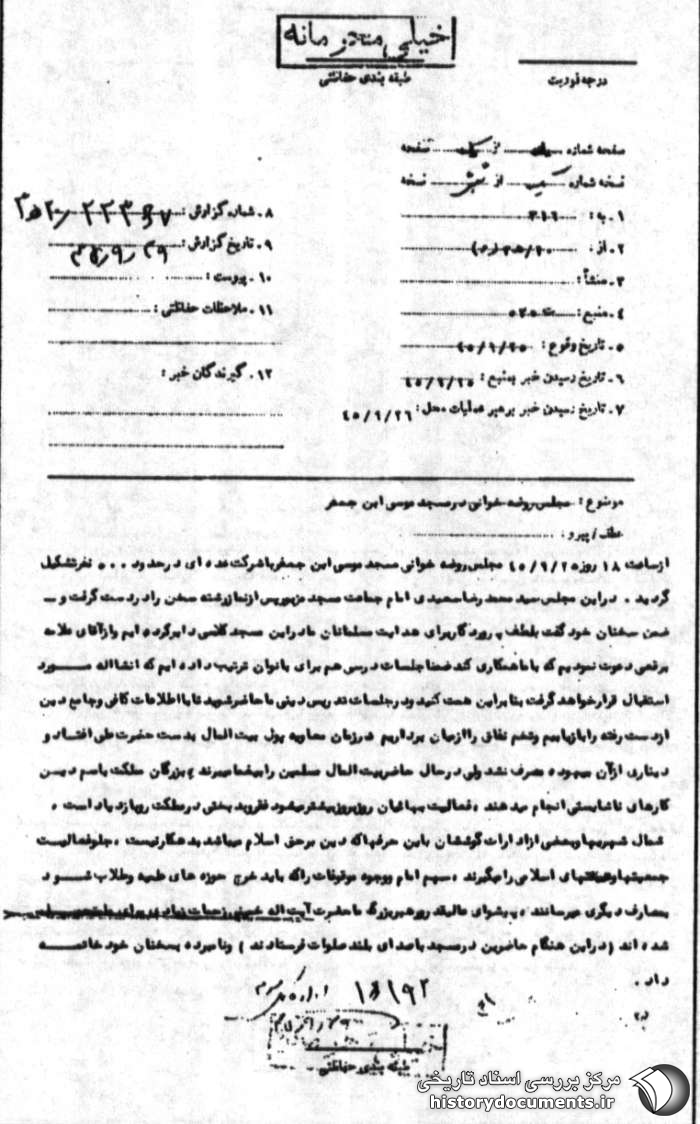 خیلی محرمانه
طبقه بندی حفاظتی
درجه فوریت
صفحه شماره یک از یک صفحه
نسخه شماره یک از شش نسخه
۱ـ به : ۳۱۶
۲ـ از : ۲۰ ه ۳
۳ـ منشأ :
۴ـ منبع :
۵ـ تاریخ وقوع : ۴۵/۹/۲۵
۶ـ تاریخ رسیدن خبر بمنبع : ۴۵/۹/۲۵
۷ـ تاریخ رسیدن خبر برهبر عملیات محل : ۴۵/۹/۲۶
۸ـ شماره گزارش :
۹ـ تاریخ گزارش : ۲۹/۹/۴۵
۱۰ـ پیوست :
۱۱ـ ملاحظات حفاظتی :
۱۲ـ گیرندگان خبر :
موضوع : مجلس روضه خوانی در مسجد موسی ابن جعفر
عطف / پیرو :
از ساعت ۱۸ روز ۴۵/۹/۲۵ مجلس روضه خوانی مسجد موسی ابن جعفر با شرکت عده ای در حدود نفر تشکیل
گردید . در این مجلس سید محمد رضا سعیدی امام جماعت مسجد مزبور پس از نماز رشته سخن را در دست گرفت و ـ
ضمن سخنان خود گفت بلطف پروردگار برای هدایت مسلمانان ما در این مسجد کلاسی دایر کرده ایم و از آقای علامه
برقعی دعوت نمودیم که با ما همکاری کند ضمنا جلسات درسی هم برای بانوان ترتیب داده ایم که انشااله مورد
استقبال قرار خواهد گرفت بنا براین همت کنید و در جلسات تدریس دینی ما حاضر شوید تا با اطلاعات کافی و جامع دین
از دست رفته را بازیابیم و تخم نفاق را از میان برداریم در زمان معاویه پول بیت المال بدست حضرت علی افتاد و
دیناری از آن بیهوده مصرف نشد ولی در حال حاضر بیت المال مسلمین را بیغما میبرند ، بزرگان مملکت باسم دین
کارهای ناشایستی انجام میدهند ، فعالیت بهائیان روز بروز بیشتر میشود فقر و بدبختی در مملکت رو بازدیاد است ،
شمال شهریها و بعضی از ادارات گوششان باین حرفها که دین بر حق اسلام میباشد بدهکار نیست ، جلو فعالیت
جمعیتها و هیئتهای اسلامی را میگیرند ، سهم امام و وجوه موقوفات را که باید خرج حوزه های علمیه و طلاب شود
بمصارف دیگری میرسانند ، پیشوای عالیقدر و رهبر بزرگ ما حضرت آیت اله خمینی زحمات زیادی برای
شده اند ( در این هنگام حاضرین در مسجد با صدای بلند صلوات فرستادند ) و نامبرده بسخنان خود خاتمه
داد .
طبقه بندی حفاظتی
مرکز بررسی اسناد تاریخی
historydocuments.ir